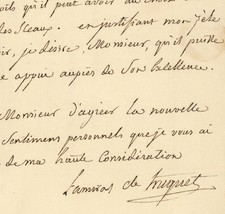 qu'il peut avoir au
les Sceaux. en justifiant mon zèle
je désire, Monsieur, qu'il puisse
appui auprès de Son Excellence.
Monsieur d'agréer la nouvelle
Sentimens personnels que je vous ai
de ma haute Considération
L'amiral de Truguet